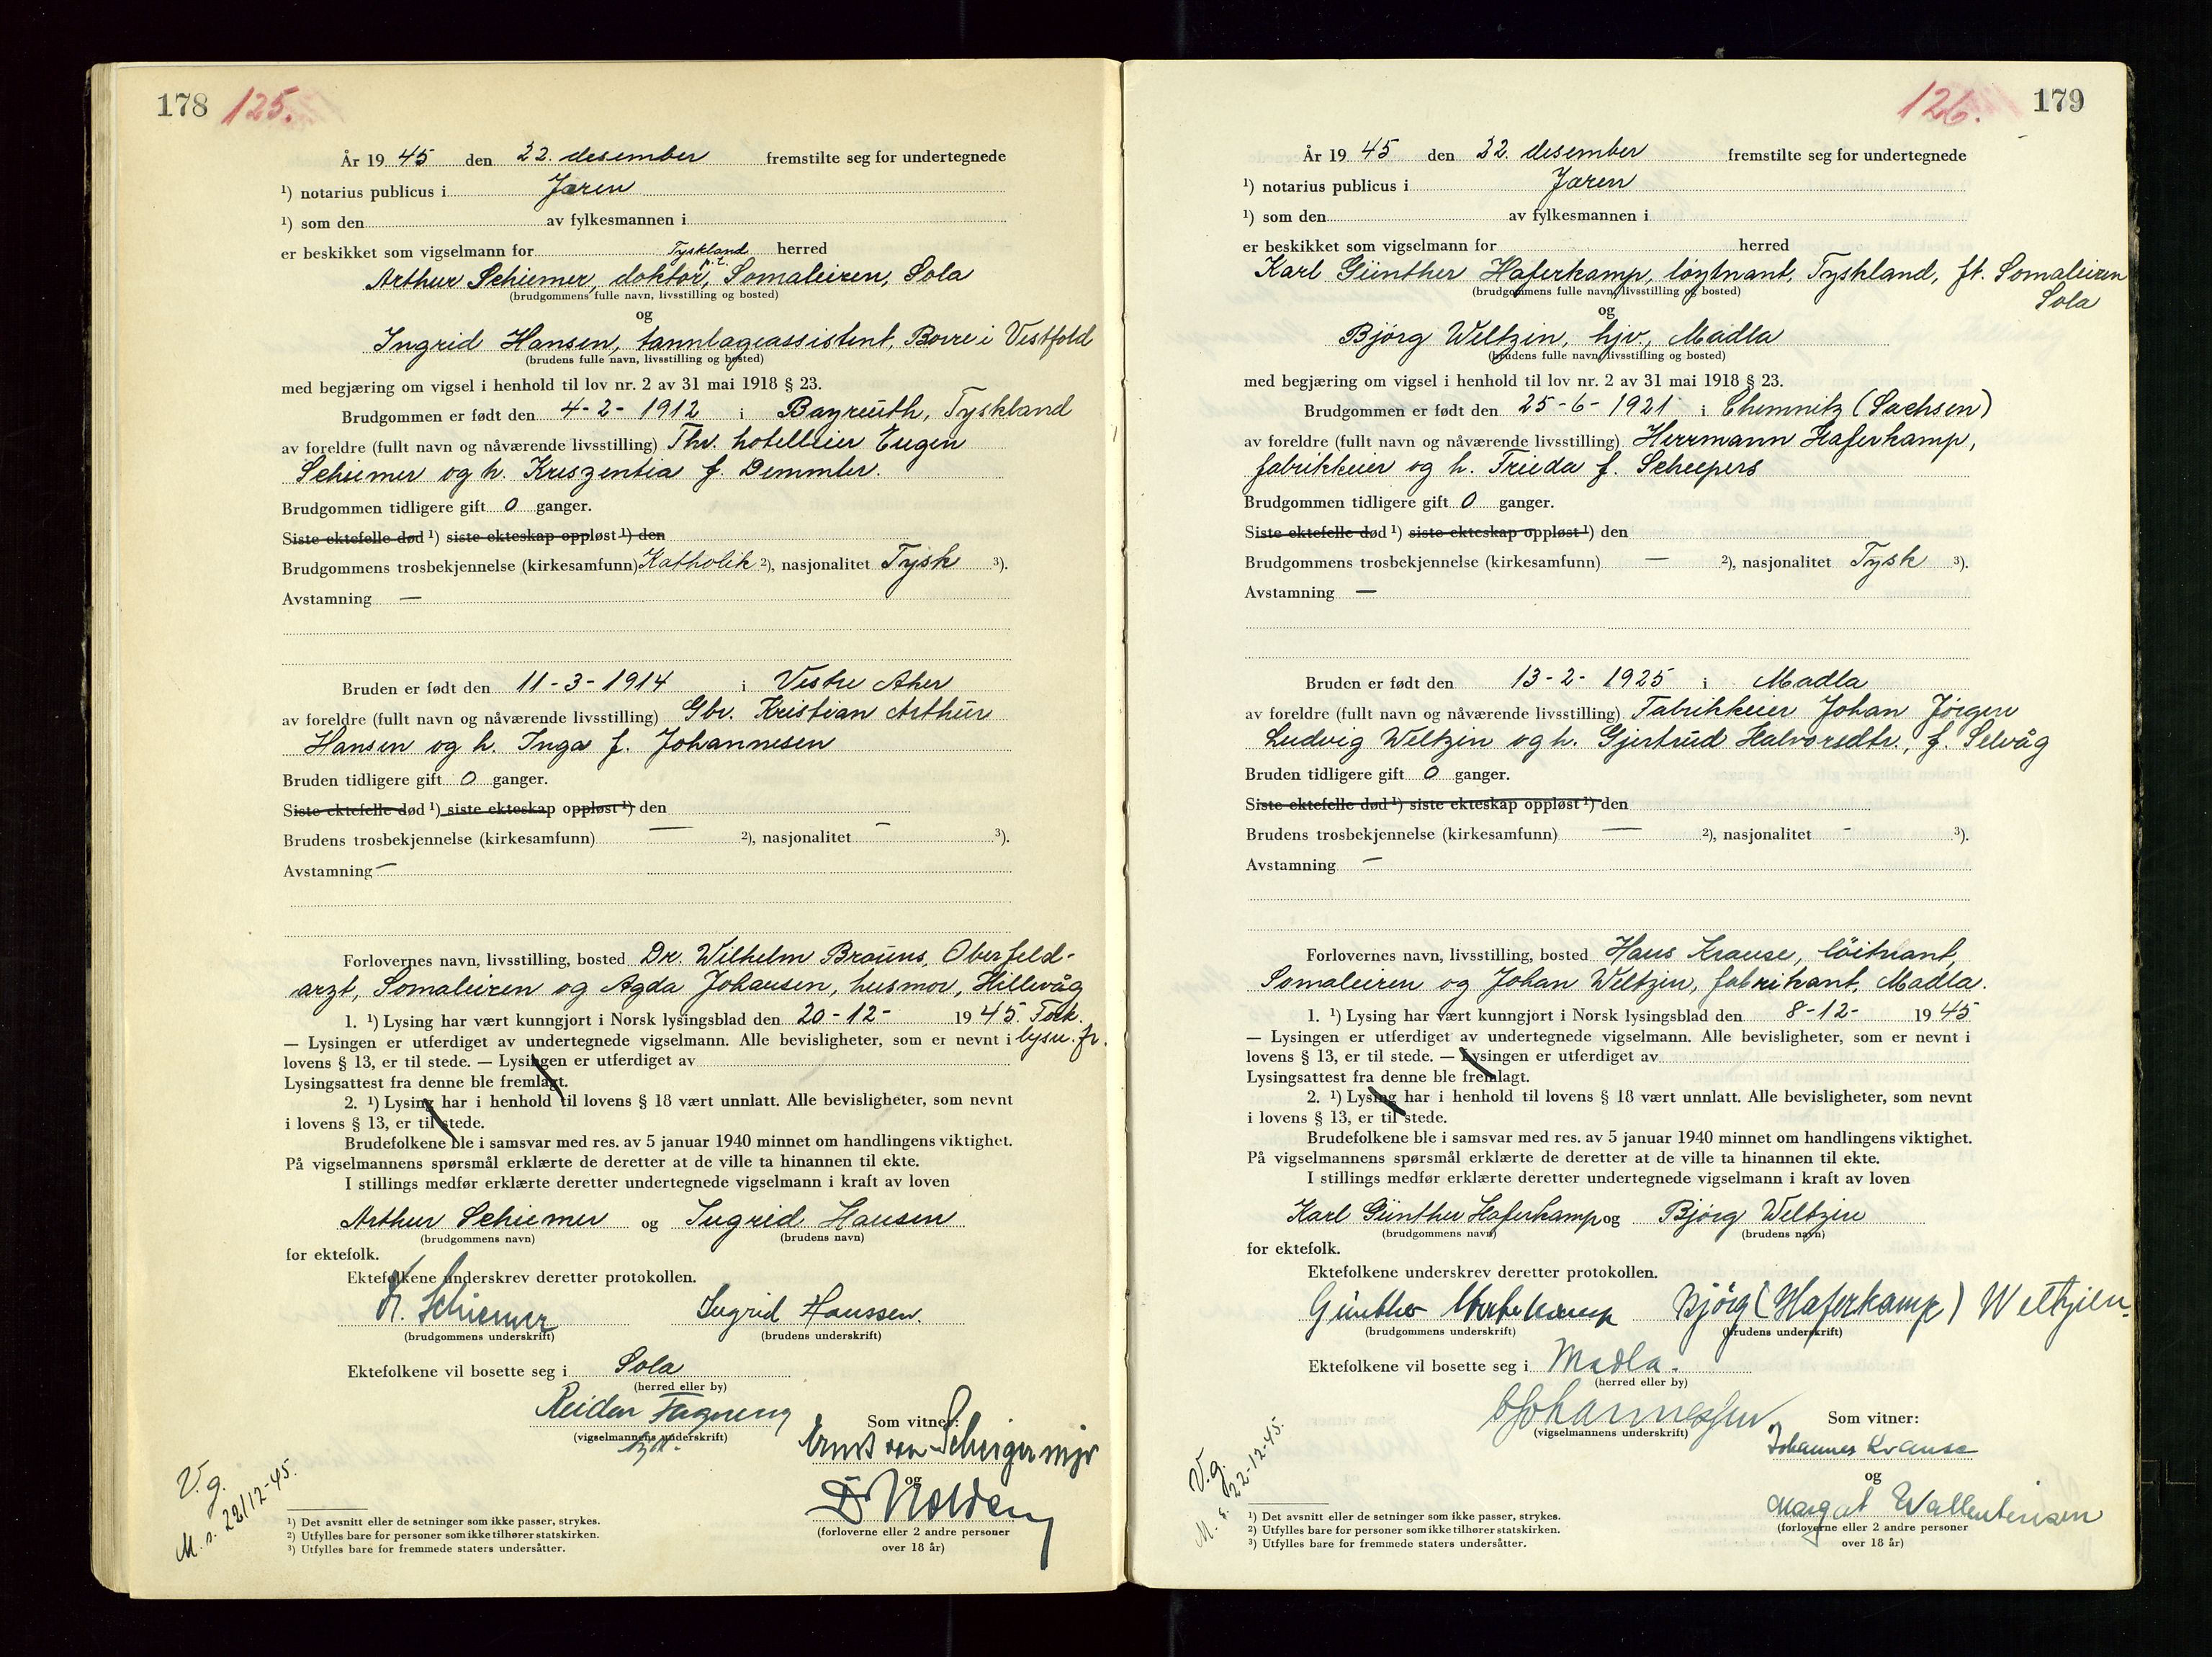 178 125.
År 19 45 den 22. desember fremstilte seg for undertegnede
¹) notarius publicus i Jæren
¹) som den av fylkesmannen i
er beskikket som vigselmann for herred
Tyskland
p.t.
Arthur Schiemer, doktor, Somaleiren, Sola
(brudgommens fulle navn, livsstilling og bosted)
og
Ingrid Hansen, tannlægeassistent, Borre i Vestfold
(brudens fulle navn, livsstilling og bosted)
med begjæring om vigsel i henhold til lov nr. 2 av 31 mai 1918 § 23.
Brudgommen er født den 4-2-1912 i Bayreuth, Tyskland
av foreldre (fullt navn og nåværende livsstilling) Thv. hotelleier Eugen
Schiemer og h. Kreszentia f. Demmler.
Brudgommen tidligere gift 0 ganger.
Siste ektefelle død ¹) siste ekteskap oppløst ¹) den
Brudgommens trosbekjennelse (kirkesamfunn) Katholik ²), nasjonalitet Tysk ³).
Avstamning —
Bruden er født den 11-3-1914 i Vestre Aker
av foreldre (fullt navn og nåværende livsstilling) Gbr. Kristian Arthur
Hansen og h. Inga f. Johannesen
Bruden tidligere gift 0 ganger.
Siste ektefelle død ¹) siste ekteskap oppløst ¹) den
Brudens trosbekjennelse (kirkesamfunn) — ²), nasjonalitet — ³).
Avstamning —
Forlovernes navn, livsstilling, bosted Dr. Wilhelm Brauns, Oberfeld-
arzt, Somaleiren og Agda Johansen, husmor, Hillevåg
1. ¹) Lysing har vært kunngjort i Norsk lysingsblad den 20-12- 19 45.
— Lysingen er utferdiget av undertegnede vigselmann. Alle bevisligheter, som er nevnt i lysn. fr.
lovens § 13, er til stede. — Lysingen er utferdiget av
Lysingsattest fra denne ble fremlagt.
2. ¹) Lysing har i henhold til lovens § 18 vært unnlatt. Alle bevisligheter, som nevnt
i lovens § 13, er til stede.
Brudefolkene ble i samsvar med res. av 5 januar 1940 minnet om handlingens viktighet.
På vigselmannens spørsmål erklærte de deretter at de ville ta hinannen til ekte.
I stillings medfør erklærte deretter undertegnede vigselmann i kraft av loven
Arthur Schiemer og Ingrid Hansen
(brudgommens navn) (brudens navn)
for ektefolk.
Ektefolkene underskrev deretter protokollen.
A. Schiemer Ingrid Hanssen.
(brudgommens underskrift) (brudens underskrift)
Ektefolkene vil bosette seg i Sola
(herred eller by)
Reidar
(vigselmannens underskrift)
Som vitner:
Ernst von
og
(forloverne eller 2 andre personer
over 18 år)
V.g.
M. s. 22/12-45.
¹) Det avsnitt eller de setninger som ikke passer, strykes.
²) Utfylles bare for personer som ikke tilhører statskirken.
³) Utfylles bare for fremmede staters undersåtter.
126. 179
År 19 45 den 22. desember fremstilte seg for undertegnede
¹) notarius publicus i Jæren
¹) som den av fylkesmannen i
er beskikket som vigselmann for herred
Karl Günther Haferkamp, løytnant, Tyskland, f.t. Somaleiren
Sola
(brudgommens fulle navn, livsstilling og bosted)
og
Bjørg Weltzin, hjv., Madla
(brudens fulle navn, livsstilling og bosted)
med begjæring om vigsel i henhold til lov nr. 2 av 31 mai 1918 § 23.
Brudgommen er født den 25-6-1921 i Chemnitz (Sachsen)
av foreldre (fullt navn og nåværende livsstilling) Herrmann Haferkamp,
fabrikkeier og h. Frieda f. Scheepers
Brudgommen tidligere gift 0 ganger.
Siste ektefelle død ¹) siste ekteskap oppløst ¹) den
Brudgommens trosbekjennelse (kirkesamfunn) — ²), nasjonalitet Tysk ³).
Avstamning —
Bruden er født den 13-2-1925 i Madla
av foreldre (fullt navn og nåværende livsstilling) Fabrikkeier Johan Jörgen
Ludvig Weltzin og h. Gjertrud Halvorsdtr., f. Selvåg
Bruden tidligere gift 0 ganger.
Siste ektefelle død ¹) siste ekteskap oppløst ¹) den
Brudens trosbekjennelse (kirkesamfunn) — ²), nasjonalitet - ³).
Avstamning —
Forlovernes navn, livsstilling, bosted Hans Krause, löitnant,
Somaleiren og Johan Weltzin, fabrikant, Madla.
1. ¹) Lysing har vært kunngjort i Norsk lysingsblad den 8-12- 19 45
— Lysingen er utferdiget av undertegnede vigselmann. Alle bevisligheter, som er nevnt i
lovens § 13, er til stede. — Lysingen er utferdiget av
Lysingsattest fra denne ble fremlagt.
2. ¹) Lysing har i henhold til lovens § 18 vært unnlatt. Alle bevisligheter, som nevnt
i lovens § 13, er til stede.
Brudefolkene ble i samsvar med res. av 5 januar 1940 minnet om handlingens viktighet.
På vigselmannens spørsmål erklærte de deretter at de ville ta hinannen til ekte.
I stillings medfør erklærte deretter undertegnede vigselmann i kraft av loven
Karl Günther Haferkamp og Bjørg Weltzin
(brudgommens navn) (brudens navn)
for ektefolk.
Ektefolkene underskrev deretter protokollen.
Günther Haferkamp Björg (Haferkamp) Weltzien.
(brudgommens underskrift) (brudens underskrift)
Ektefolkene vil bosette seg i Madla.
(herred eller by)
Johannessen
(vigselmannens underskrift)
Som vitner:
Johannes Krause
og
Margot Wallentinsen
(forloverne eller 2 andre personer
over 18 år)
V.g.
M. s. 22-12-45.
¹) Det avsnitt eller de setninger som ikke passer, strykes.
²) Utfylles bare for personer som ikke tilhører statskirken.
³) Utfylles bare for fremmede staters undersåtter.